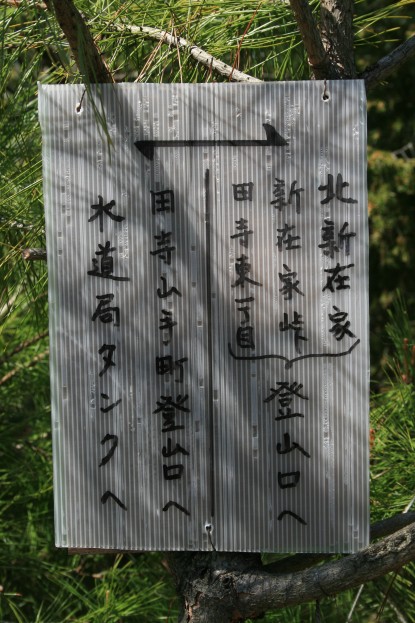 北新在家
新在家峠
田寺東一丁目
登山口へ
田寺山手町登山口へ
水道局タンクへ